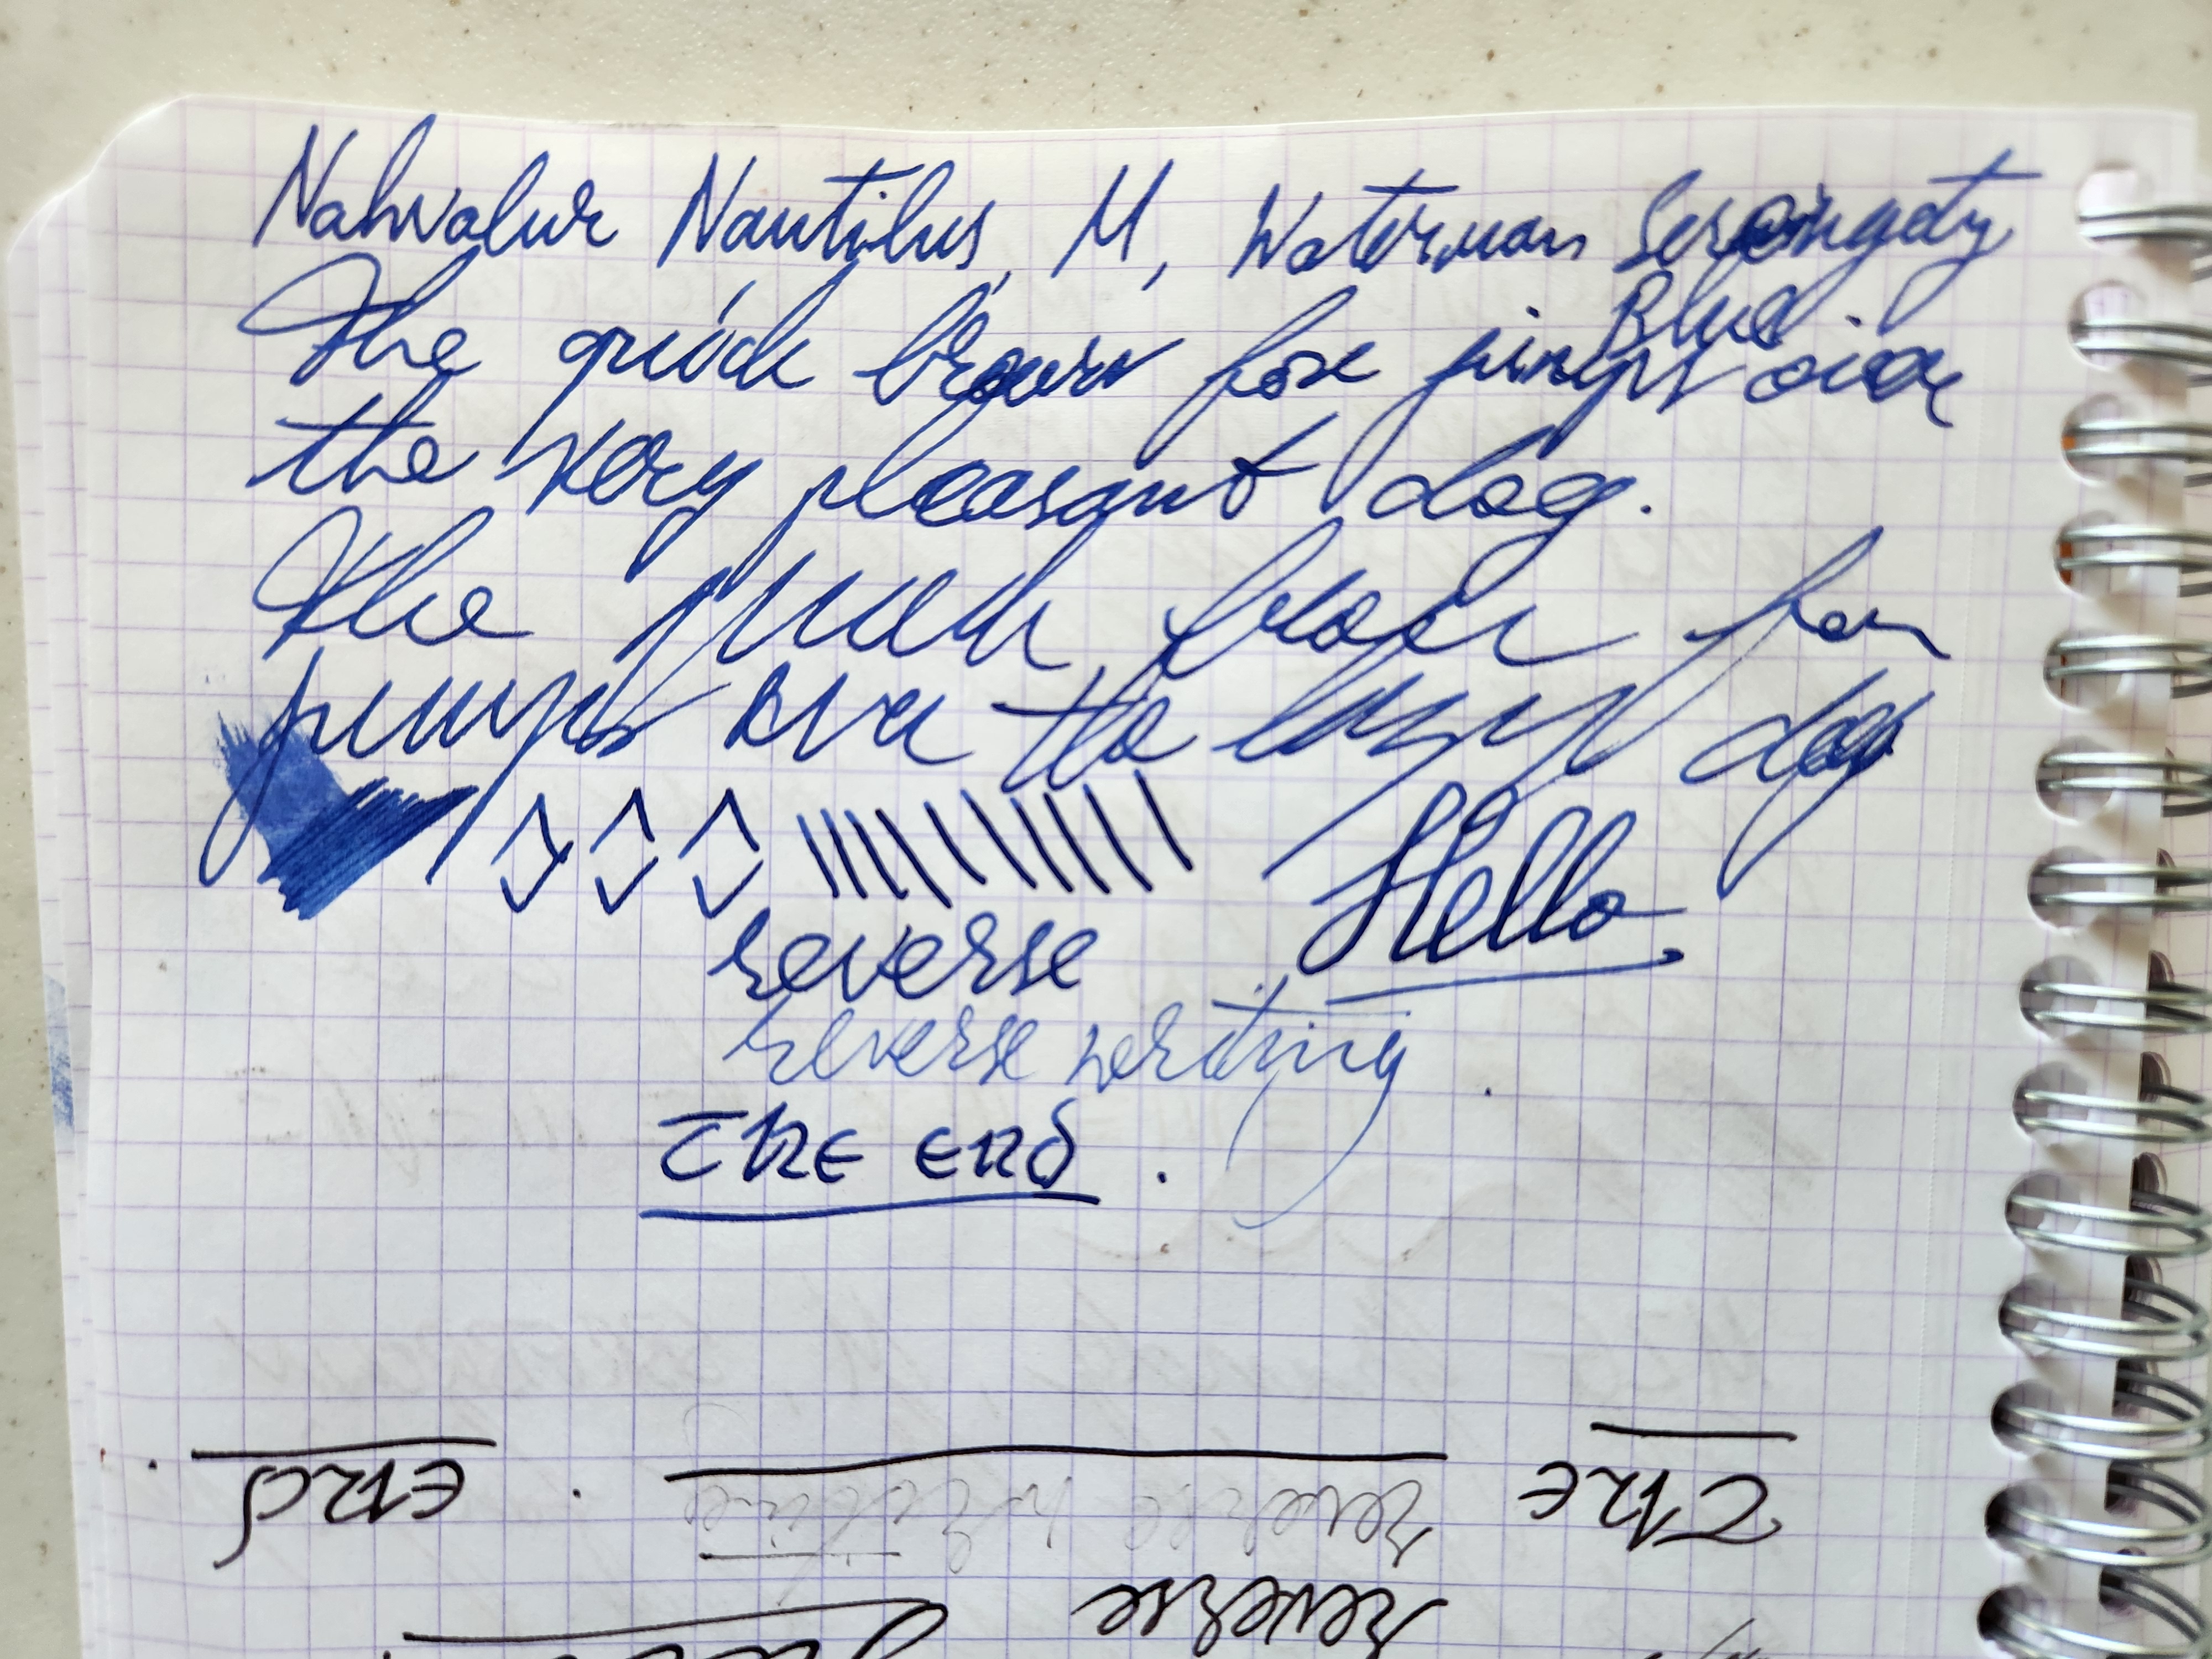 Nahvalur Nautilus, M, Waterman Serengety
Blue.
The quick brown fox jumps over
the very pleasant dog.
The quick brown fox
jumps over the lazy dog
Hello.
reverse
reverse writing
The end.
The end.
reverse writing.
reverse